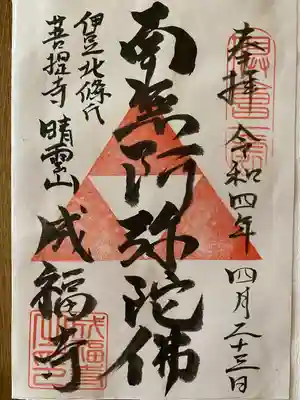 奉拝 令和四年 四月二十三日
南無阿弥陀佛
伊豆北條氏
菩提寺 晴雲山 成福寺